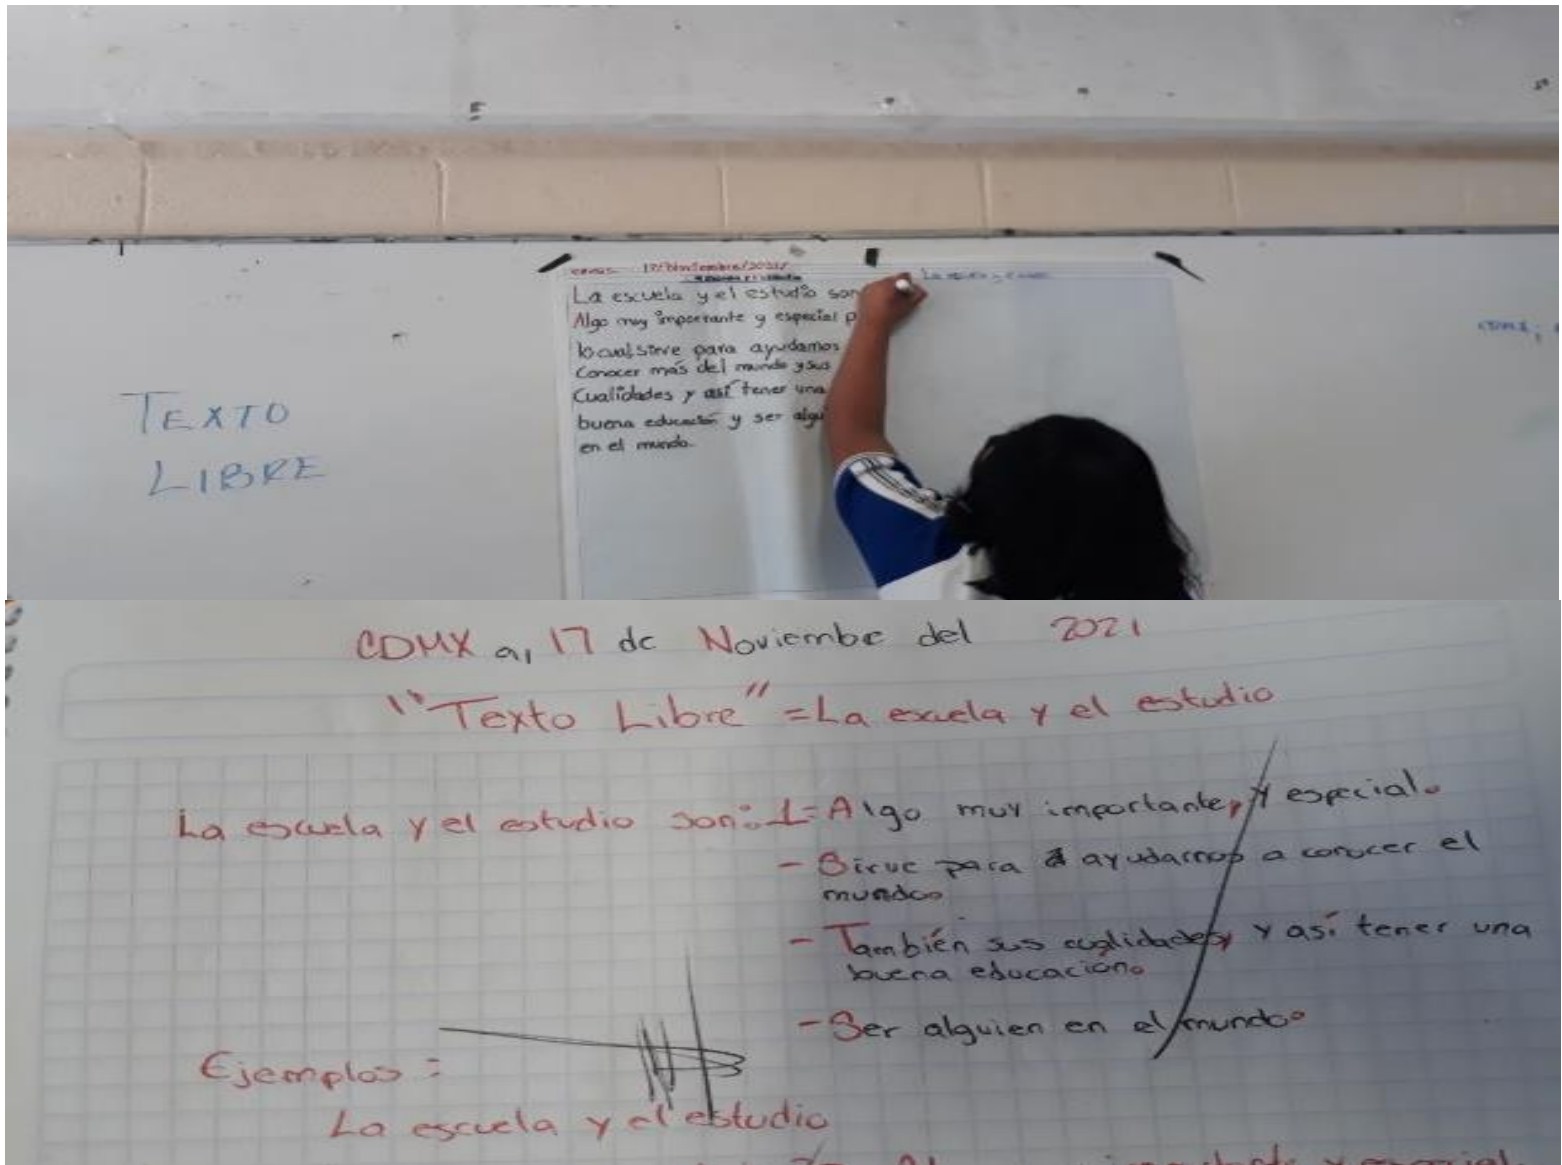 TEXTO
LIBRE
17/Noviembre/2021
La escuela y el estudio son
Algo muy importante y especial p
lo cual sirve para ayudarnos
Conocer más del mundo y sus
Cualidades y así tener una
buena educación y ser algu
en el mundo.
CDMX a, 17 de Noviembre del 2021
"Texto Libre" = La escuela y el estudio
La escuela y el estudio son: 1= Algo muy importante, y especial.
- Sirve para ayudarnos a conocer el
mundo.
- También sus cualidades, y así tener una
buena educacion.
- Ser alguien en el mundo.
Ejemplos:
La escuela y el estudio